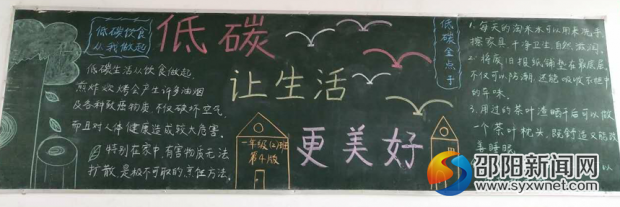 低碳饮食
从我做起
低碳
让生活
更美好
低碳生活从饮食做起,
煎炸炊烤会产生许多油烟
及各种致癌物质,不仅破坏空气,
而且对人体健康造成较大危害。
特别在家中,有害物质无法
扩散是极不可取的烹饪方法。
一年级(2)班
第4版
低碳金点子
1.每天的淘米水可以用来洗手
擦家具,干净卫生,自然滋润。
2.将废旧报纸铺垫在衣橱底层,
不仅可以防潮,还能吸收衣柜中
的异味。
3.用过的茶叶渣晒干后可以做
一个茶叶枕头,既舒适又能改
善睡眠。
以
邵阳新闻网
www.syxwnet.com